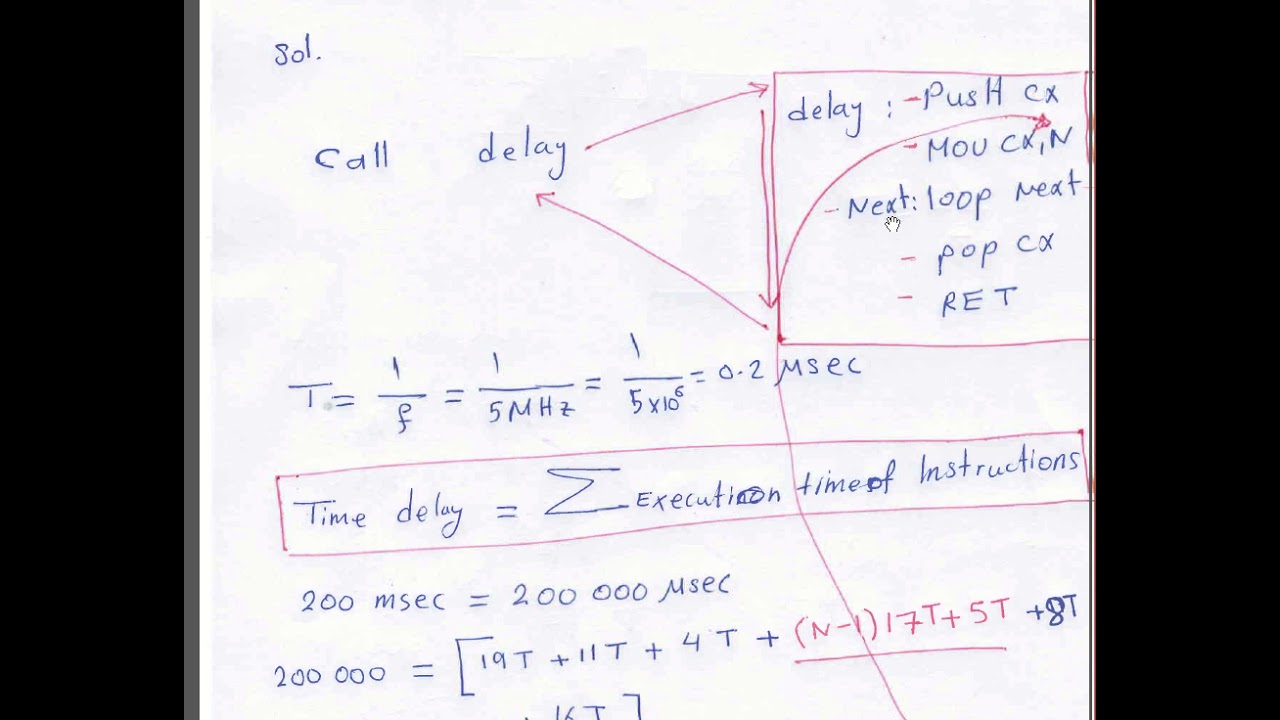 Sol.
Call delay
delay : - PusH cx
- MOV CX, N
- Next: loop Next
- pop cx
- RET
T = 1/f = 1/5MHz = 1/5x10⁶ = 0.2 µsec
Time delay = Σ Execution time of Instructions
200 msec = 200 000 µsec
200 000 = [19T + 11T + 4T + (N-1)17T + 5T + 8T
+ 16T]